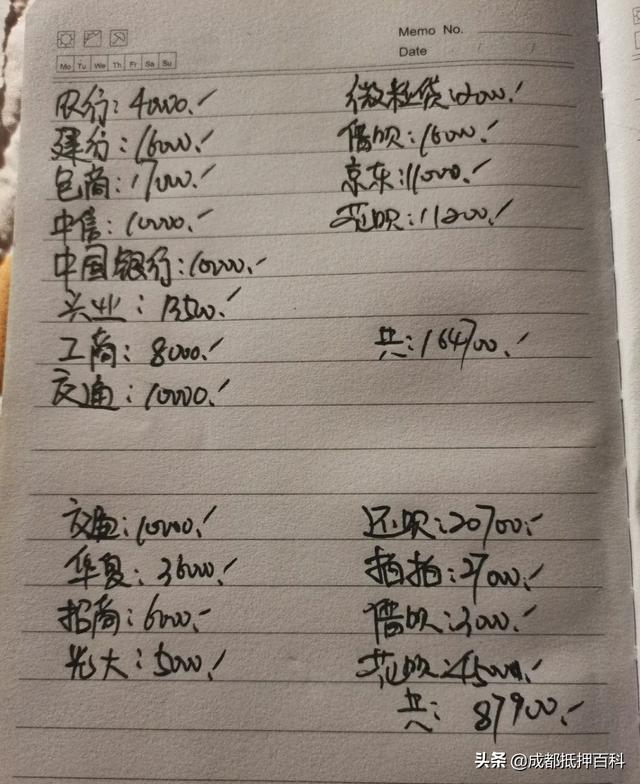 Memo No.
Date
Mo Tu We Th Fr Sa Su
农行:40000.✓ 微粒贷:2000.✓
建行:16000.✓ 借呗:16000.✓
包商:17000.✓ 京东:11000.✓
中信:10000.✓ 花呗:11200.✓
中国银行:10000.✓
兴业:13500.✓
工商:8000.✓ 共:164700.✓
交通:10000.✓
交通:10000.✓ 还呗:20700.✓
华夏:36000.✓ 拍拍:2700.✓
招商:6000.✓ 借呗:3000.✓
光大:5000.✓ 花呗:4500.✓
共:87900.✓
头条 @成都抵押百科